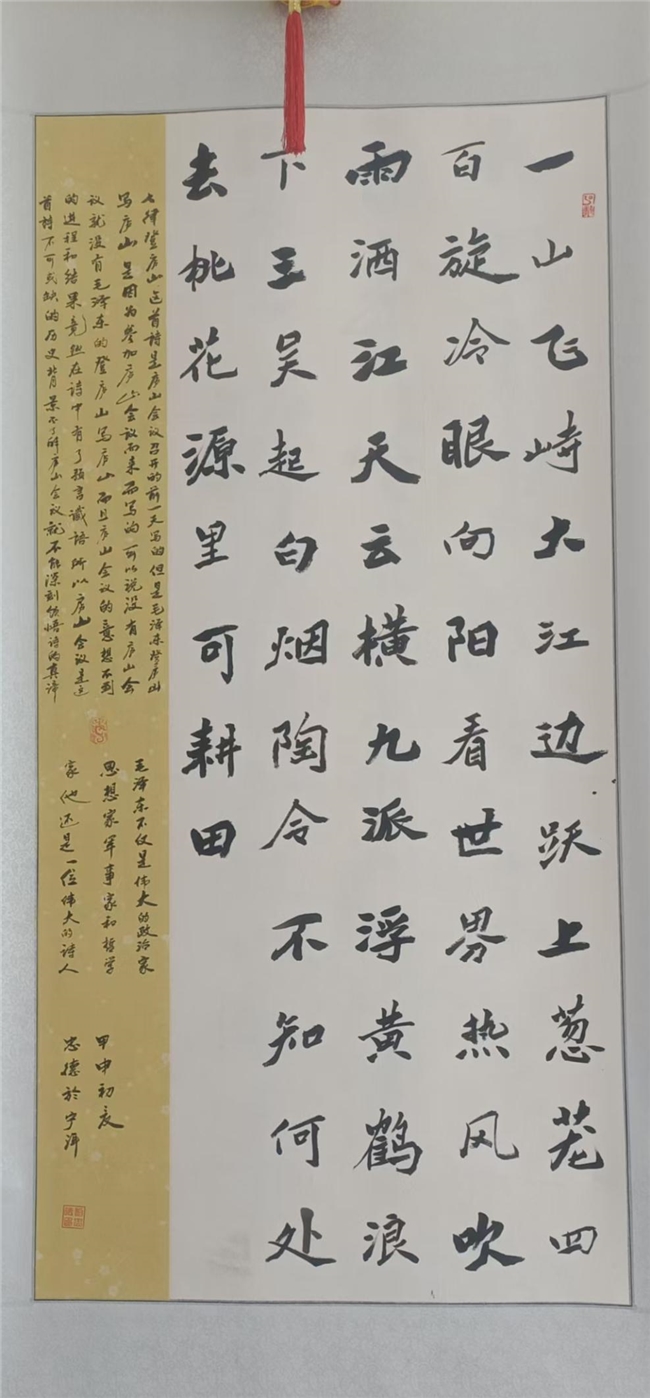 一山飞崎大江边跃上葱茏四
百旋冷眼向阳看世界热风吹
雨洒江天云横九派浮黄鹤浪
下三吴起白烟陶令不知何处
去桃花源里可耕田
七律登庐山这首詩是庐山会议召开的前一天写的但是毛泽东登庐山
写庐山是因为参加庐山会议而来而写的可以说没有庐山会
议就没有毛泽东的登庐山写庐山而且庐山会议的意想不到
的进程和结果竟然在诗中有了预言谶语所以庐山会议是这
首詩不可或缺的历史背景不了解庐山会议就不能深刻领悟诗的真谛
毛泽东不仅是伟大的政治家
思想家军事家和哲学
家他还是一位伟大的诗人
甲申初夏
忠德於宁